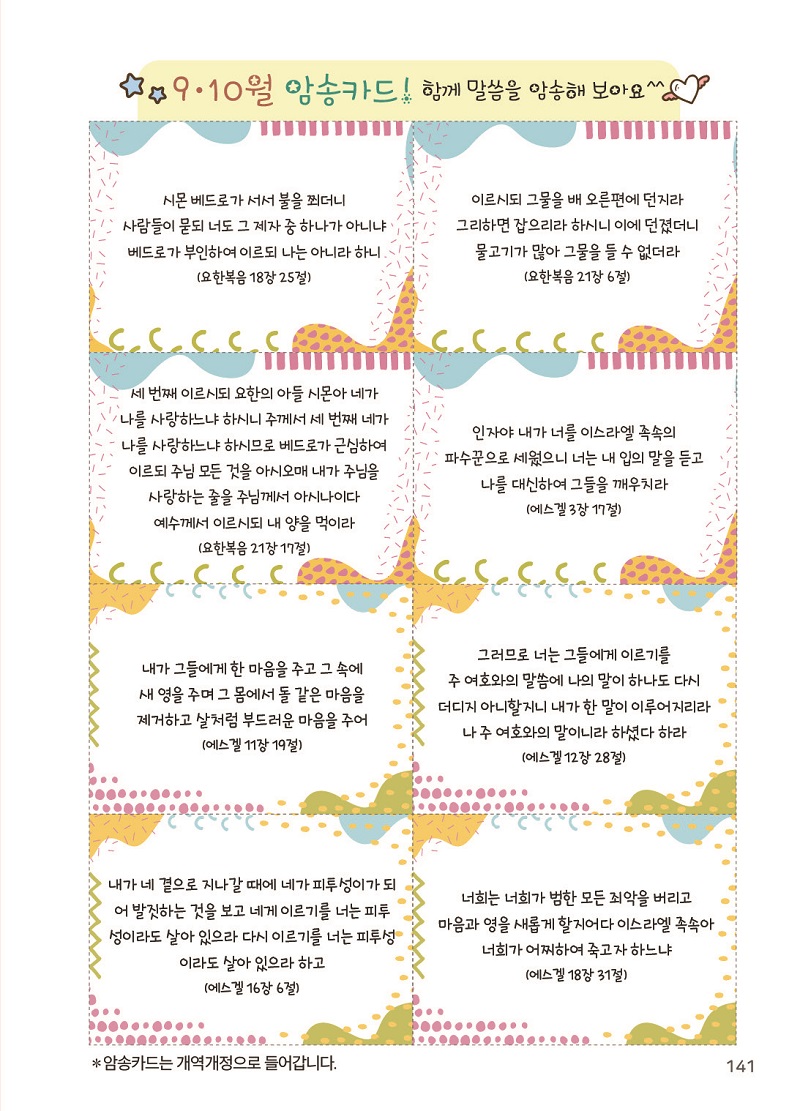 9·10월 암송카드! 함께 말씀을 암송해 보아요^^
시몬 베드로가 서서 불을 쬐더니
사람들이 묻되 너도 그 제자 중 하나가 아니냐
베드로가 부인하여 이르되 나는 아니라 하니
(요한복음 18장 25절)
이르시되 그물을 배 오른편에 던지라
그리하면 잡으리라 하시니 이에 던졌더니
물고기가 많아 그물을 들 수 없더라
(요한복음 21장 6절)
세 번째 이르시되 요한의 아들 시몬아 네가
나를 사랑하느냐 하시니 주께서 세 번째 네가
나를 사랑하느냐 하시므로 베드로가 근심하여
이르되 주님 모든 것을 아시오매 내가 주님을
사랑하는 줄을 주님께서 아시나이다
예수께서 이르시되 내 양을 먹이라
(요한복음 21장 17절)
인자야 내가 너를 이스라엘 족속의
파수꾼으로 세웠으니 너는 내 입의 말을 듣고
나를 대신하여 그들을 깨우치라
(에스겔 3장 17절)
내가 그들에게 한 마음을 주고 그 속에
새 영을 주며 그 몸에서 돌 같은 마음을
제거하고 살처럼 부드러운 마음을 주어
(에스겔 11장 19절)
그러므로 너는 그들에게 이르기를
주 여호와의 말씀에 나의 말이 하나도 다시
더디지 아니할지니 내가 한 말이 이루어지리라
나 주 여호와의 말이니라 하셨다 하라
(에스겔 12장 28절)
내가 네 곁으로 지나갈 때에 네가 피투성이가 되
어 발짓하는 것을 보고 네게 이르기를 너는 피투
성이라도 살아 있으라 다시 이르기를 너는 피투성
이라도 살아 있으라 하고
(에스겔 16장 6절)
너희는 너희가 범한 모든 죄악을 버리고
마음과 영을 새롭게 할지어다 이스라엘 족속아
너희가 어찌하여 죽고자 하느냐
(에스겔 18장 31절)
*암송카드는 개역개정으로 들어갑니다.
141